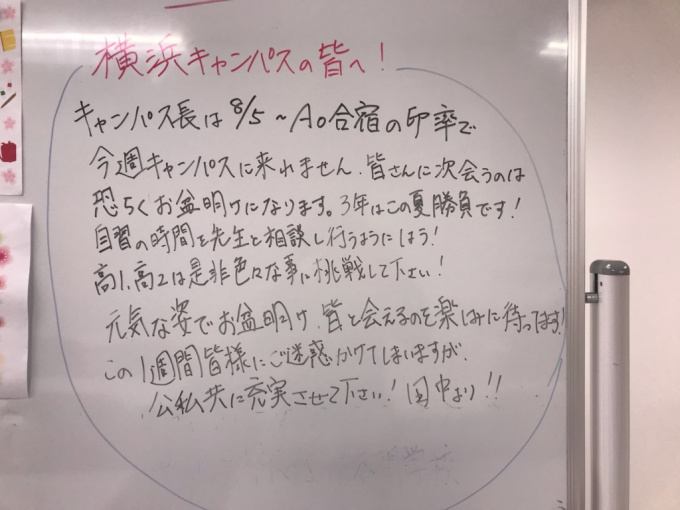 横浜キャンパスの皆へ!
キャンパス長は8/5~AO合宿の印率で
今週キャンパスに来れません。皆さんに次会うのは
恐らくお盆明けになります。3年はこの夏勝負です!
自習の時間を先生と相談し行うようにしよう!
高1、高2は是非色々な事に挑戦して下さい!
元気な姿でお盆明け、皆と会えるのを楽しみに待ってます!
この1週間皆様にご迷惑かけてしまいますが、
公私共に充実させて下さい! 田中より!!